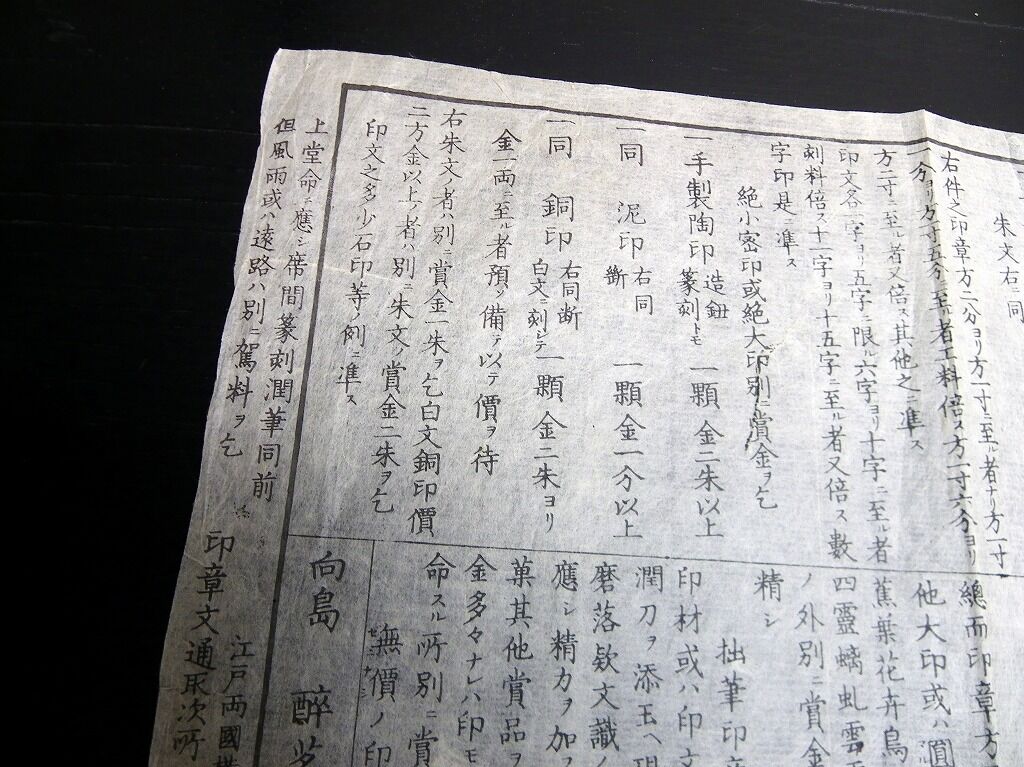 朱文右二同
右件之印章方二分ヨリ方一寸ニ至ル者ナリ方一寸
一分ヨリ方一寸五分ニ至ル者工料倍ス方一寸六分ヨリ
方二寸ニ至ル者又倍ス其他之ニ準ス
印文各一字ヨリ五字ニ限ル六字ヨリ十字ニ至ル者
刻料倍ス十一字ヨリ十五字ニ至ル者又倍ス數
字印是ニ準ス
絶小密印或絶大印別ニ賞金ヲ乞
一手製陶印 造鈕篆刻トモ 一顆金二朱以上
一同 泥印 右同斷 一顆金一分以上
一同 銅印 右同断白文ニ刻シテ 一顆金二朱ヨリ
金一両ニ至ル者預メ備ヘ以テ價ヲ待
右朱文ノ者ハ別ニ賞金一朱ヲ乞白文銅印價
二方金以上ノ者ハ別ニ朱文ノ賞金二朱ヲ乞
印文之多少石印等ノ例ニ準ス
總而印章方
他大印或ハ圓
蕉葉花卉鳥
四靈螭虬雲
ノ外別ニ賞金
精シ
拙筆印
印材或ハ印
潤刀ヲ添玉ヘ
磨落欵文識ノ
應シ精力ヲ加
菓其他賞品ヲ
金多々ナレハ印モ
命スル所別ニ賞
無價ノ印
向島 醉
上堂命ニ應シ席間篆刻潤筆同前
但風雨或ハ遠路ハ別ニ駕料ヲ乞
江戸両國
印章文通取次所